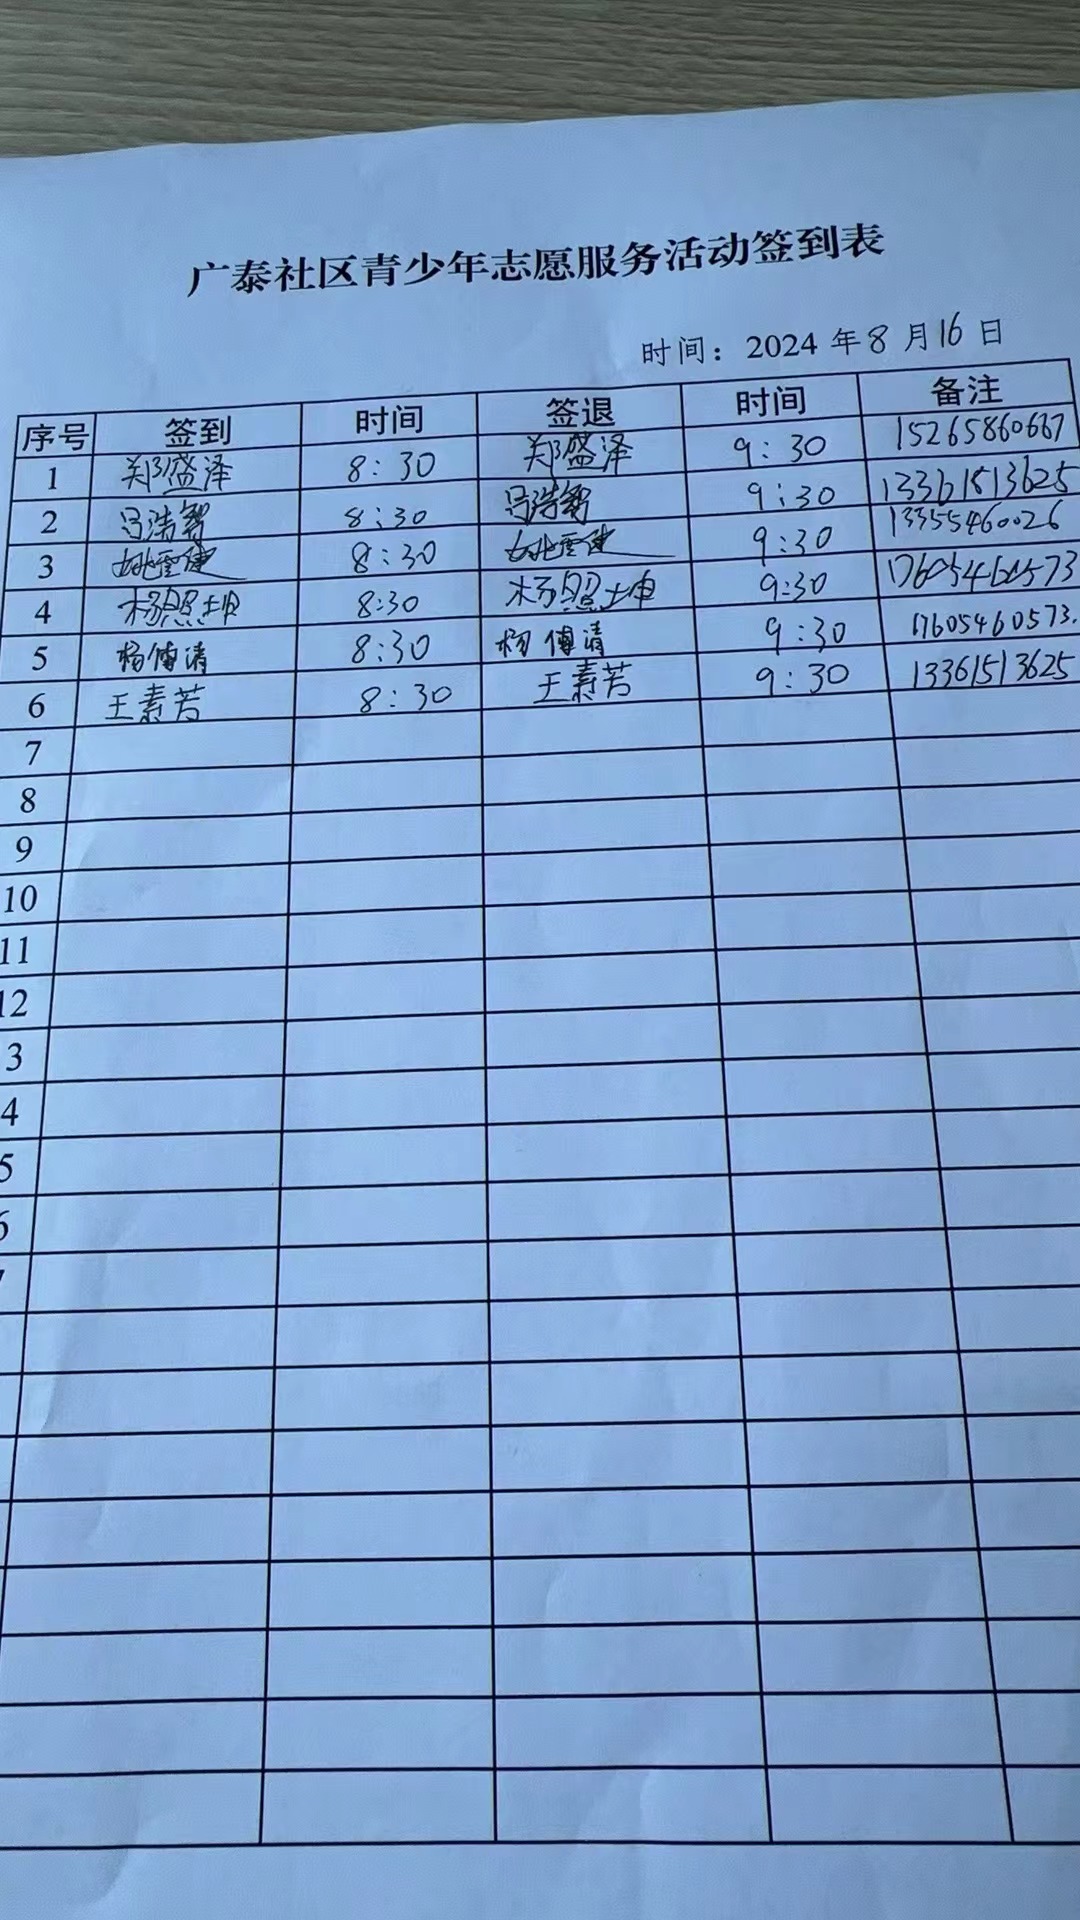 广泰社区青少年志愿服务活动签到表
时间：2024 年 8 月 16 日
序号 签到 时间 签退 时间 备注
1 郑盛泽 8:30 郑盛泽 9:30 15265860667
2 吕浩智 8:30 吕浩智 9:30 13361513625
3 姚雲建 8:30 姚雲建 9:30 13355460026
4 杨照坤 8:30 杨照坤 9:30 17605460573
5 杨傅清 8:30 杨傅清 9:30 17605460573.
6 王素芳 8:30 王素芳 9:30 13361513625
7
8
9
10
11
12
3
4
5
6